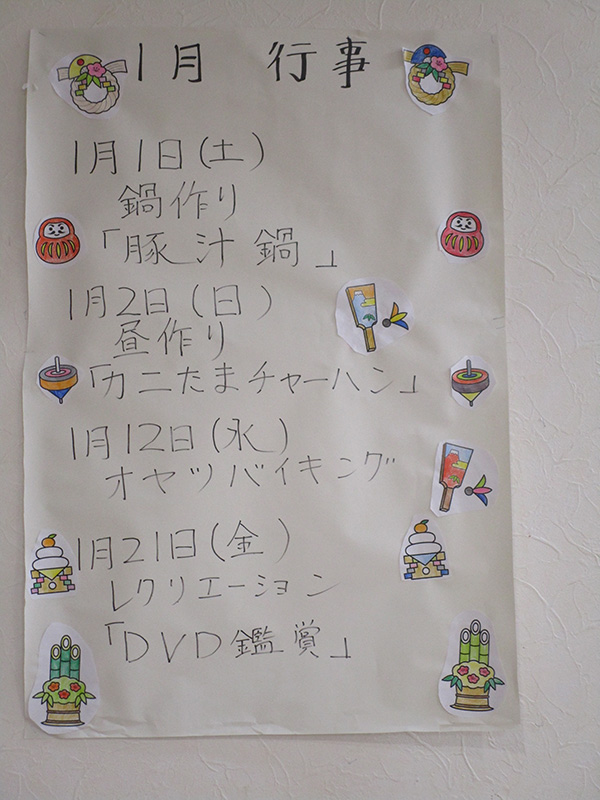 1月 行事
1月1日(土)
鍋作り
「豚汁鍋」
1月2日(日)
昼作り
「カニたまチャーハン」
1月12日(水)
オヤツバイキング
1月21日(金)
レクリエーション
「DVD鑑賞」